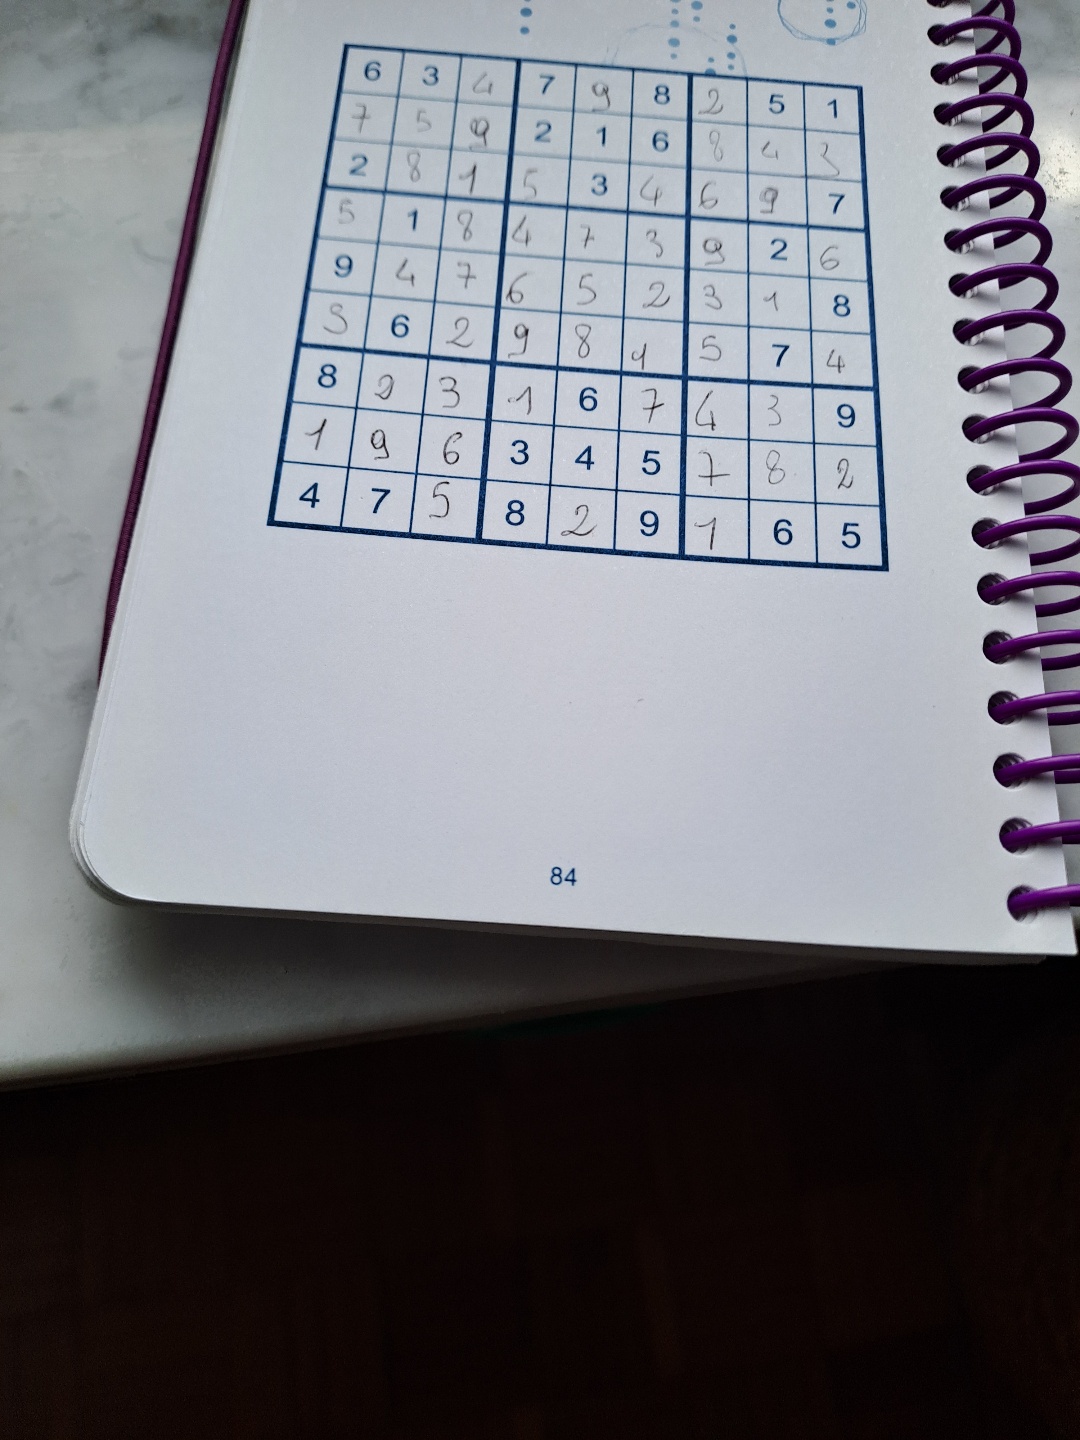 6 3 4 7 9 8 2 5 1
7 5 9 2 1 6 8 4 3
2 8 1 5 3 4 6 9 7
5 1 8 4 7 3 9 2 6
9 4 7 6 5 2 3 1 8
3 6 2 9 8 1 5 7 4
8 2 3 1 6 7 4 3 9
1 9 6 3 4 5 7 8 2
4 7 5 8 2 9 1 6 5
84